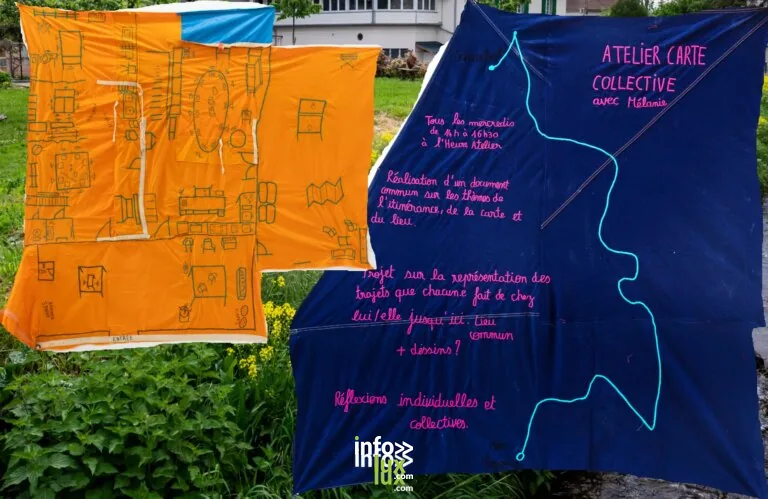 ATELIER CARTE
COLLECTIVE
avec Mélanie
Tous les mercredis
de 14h à 16h30
à l'Heure Atelier
Réalisation d'un document
commun sur les thèmes de
l'itinérance, de la carte et
du lieu.
Projet sur la représentation des
trajets que chacune fait de chez
lui/elle jusqu'ici. Lieu
commun
+ dessins?
Réflexions individuelles et
collectives.
ENTRÉE
info
lux
.com
.com